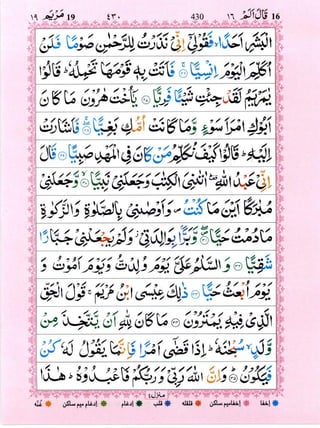 مَرْيَم 19 ١٩ ٤٣٠ 430 قَالَ اَلَمْ ١٦ 16
الْبَشَرِ اَحَدًا ۙ فَقُوْلِیْۤ اِنِّیْ نَذَرْتُ لِلرَّحْمٰنِ صَوْمًا فَلَنْ
اُكَلِّمَ الْیَوْمَ اِنْسِیًّا ۚ فَاَتَتْ بِهٖ قَوْمَهَا تَحْمِلُهٗ ؕ قَالُوْا
یٰمَرْیَمُ لَقَدْ جِئْتِ شَیْـًٔا فَرِیًّا یٰۤاُخْتَ هٰرُوْنَ مَا كَانَ
اَبُوْكِ امْرَاَ سَوْءٍ وَّمَا كَانَتْ اُمُّكِ بَغِیًّا ۖۚ فَاَشَارَتْ
اِلَیْهِ ؕ قَالُوْا كَیْفَ نُكَلِّمُ مَنْ كَانَ فِی الْمَهْدِ صَبِیًّا قَالَ
اِنِّیْ عَبْدُ اللّٰهِ ؕ اٰتٰىنِیَ الْكِتٰبَ وَجَعَلَنِیْ نَبِیًّا ۙ وَّجَعَلَنِیْ
مُبٰرَكًا اَیْنَ مَا كُنْتُ ۪ وَاَوْصٰنِیْ بِالصَّلٰوةِ وَالزَّكٰوةِ
مَا دُمْتُ حَیًّا ۪ۖ وَّبَرًّۢا بِوَالِدَتِیْ ؗ وَلَمْ یَجْعَلْنِیْ جَبَّارًا
شَقِیًّا وَالسَّلٰمُ عَلَیَّ یَوْمَ وُلِدْتُّ وَیَوْمَ اَمُوْتُ وَ
یَوْمَ اُبْعَثُ حَیًّا ذٰلِكَ عِیْسَی ابْنُ مَرْیَمَ ۚ قَوْلَ الْحَقِّ
الَّذِیْ فِیْهِ یَمْتَرُوْنَ مَا كَانَ لِلّٰهِ اَنْ یَّتَّخِذَ مِنْ
وَّلَدٍ ۙ سُبْحٰنَهٗ ؕ اِذَا قَضٰۤی اَمْرًا فَاِنَّمَا یَقُوْلُ لَهٗ كُنْ
فَیَكُوْنُ ؕ وَاِنَّ اللّٰهَ رَبِّیْ وَرَبُّكُمْ فَاعْبُدُوْهُ ؕ هٰذَا
منزل ٤
اخفا اخفا میم ساکن قلقلہ قلب ادغام ادغام میم ساکن غنہ